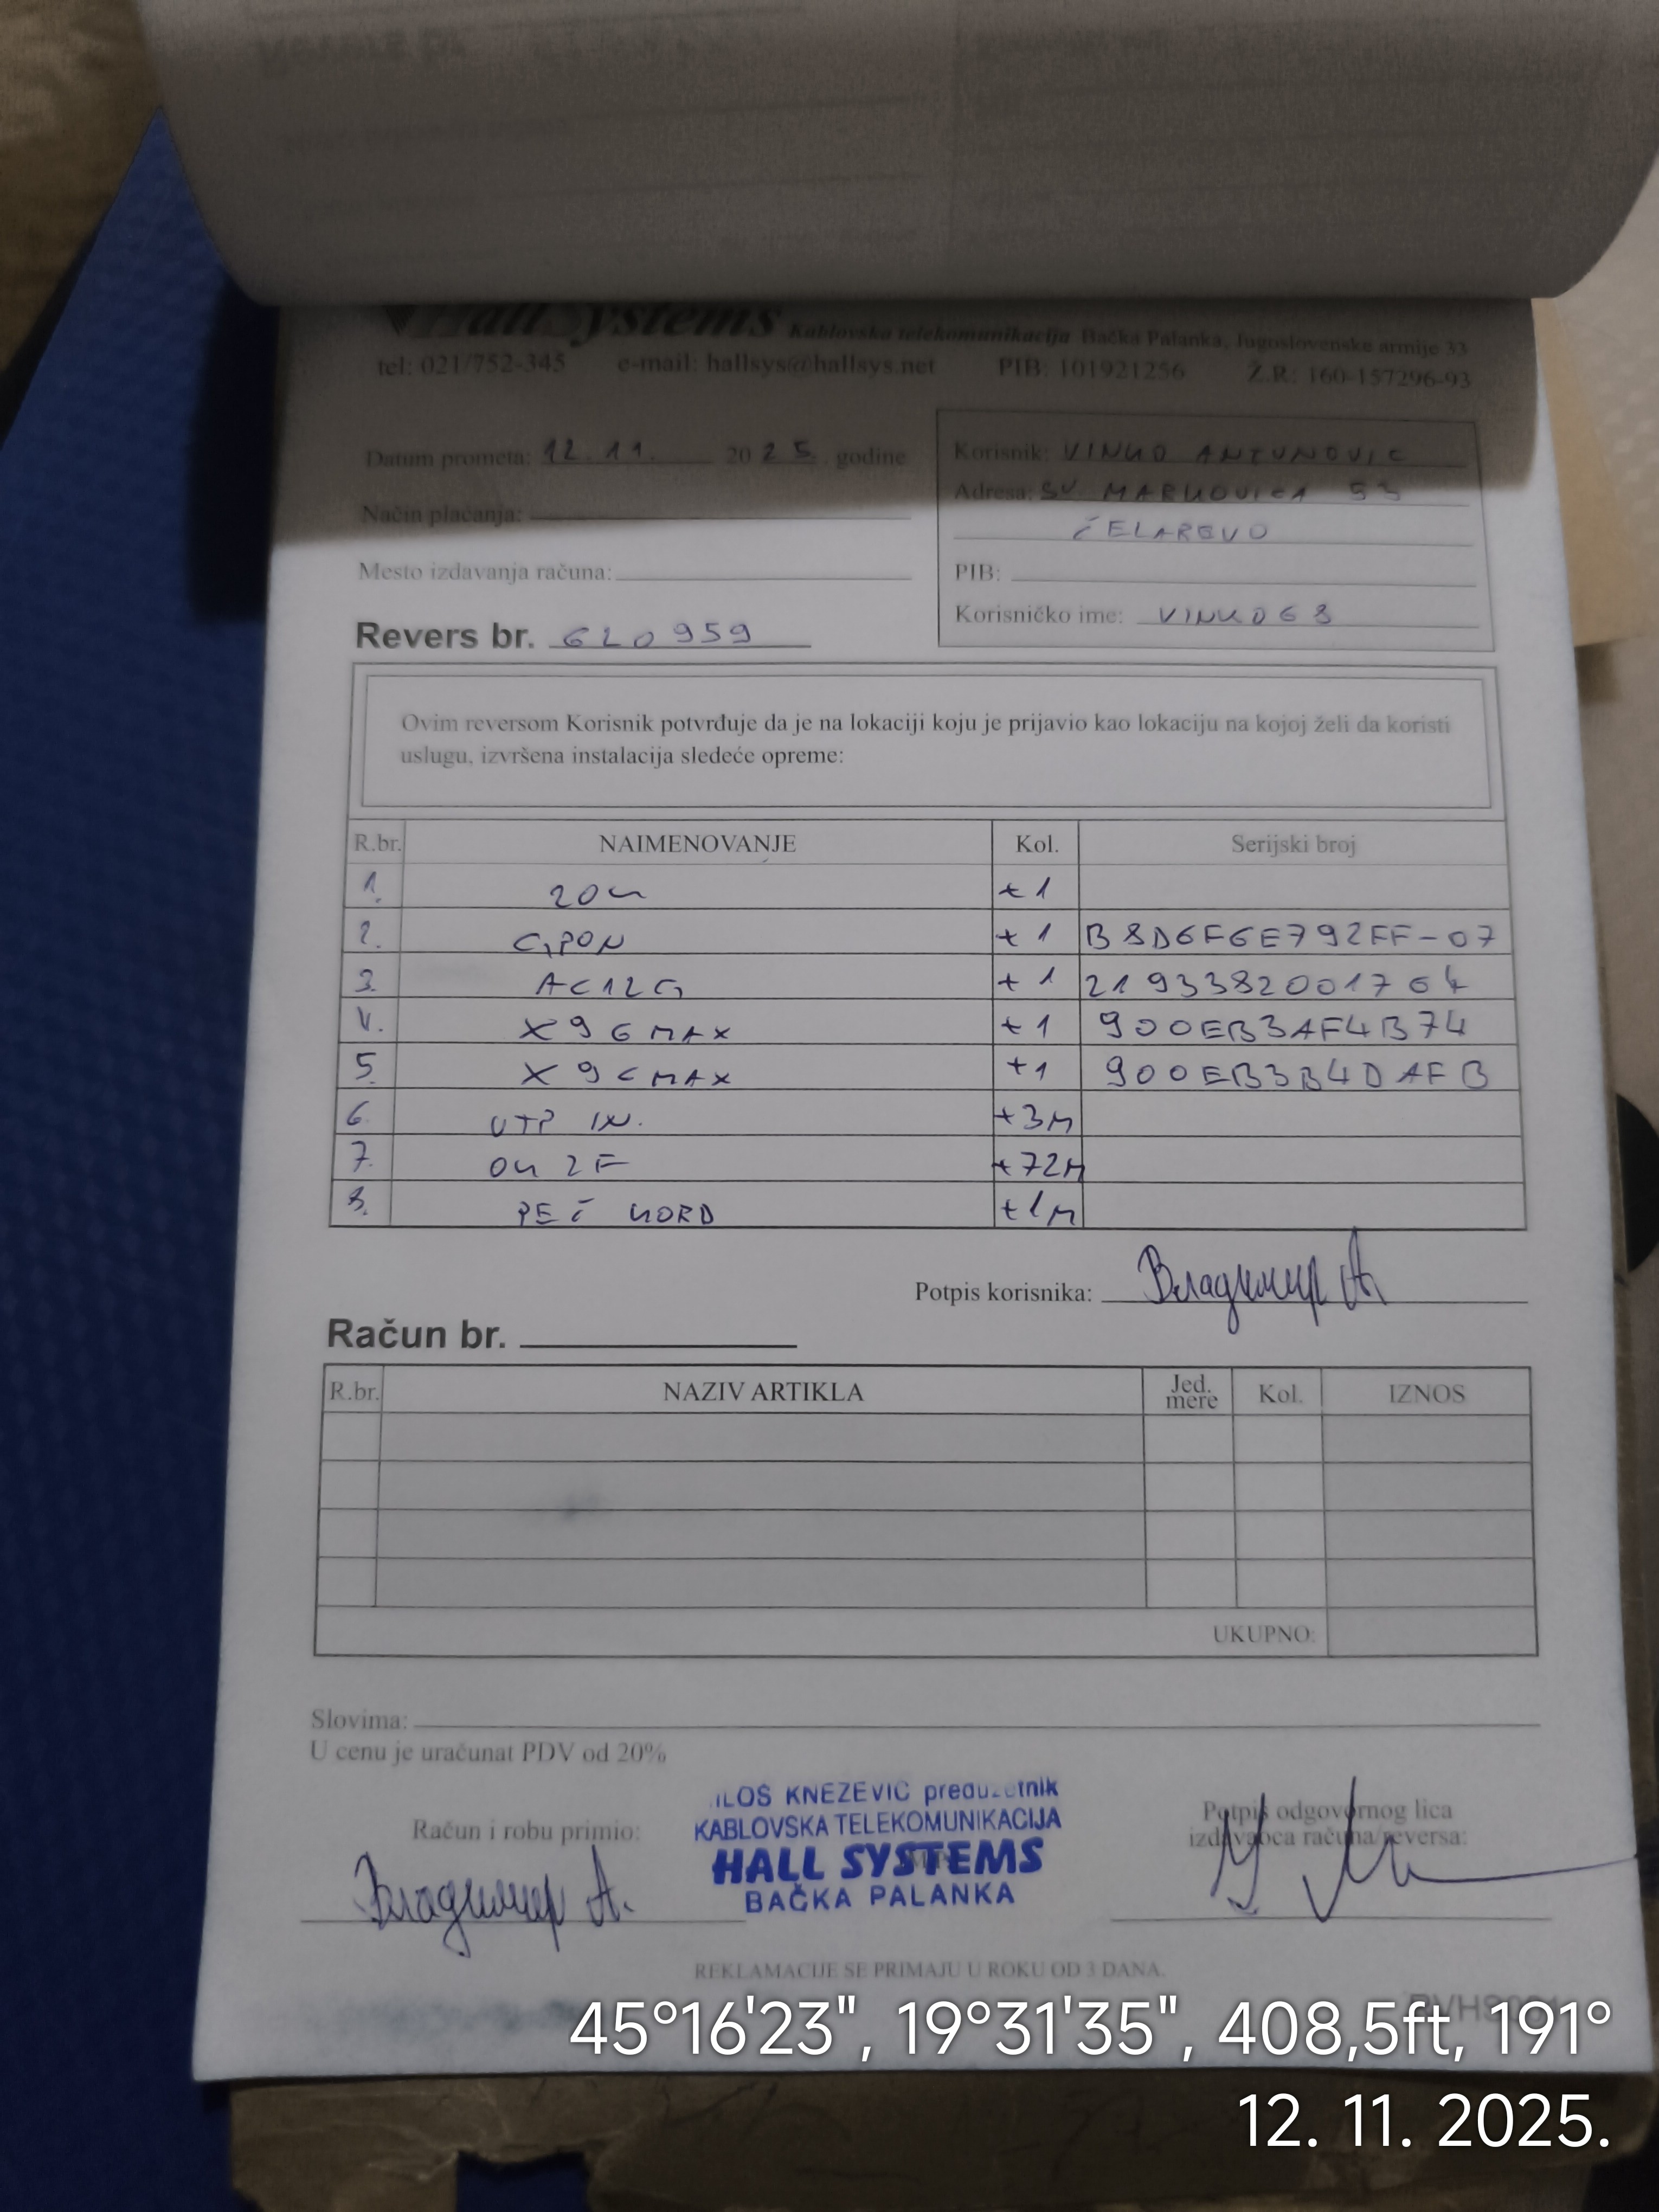 Hall Systems Kablovska telekomunikacija Bačka Palanka, Jugoslovenske armije 33
tel: 021/752-345 e-mail: hallsys@hallsys.net PIB: 101921256 Ž.R.: 160-157296-93
Datum prometa: 12.11. 2025. godine
Način plaćanja:
Mesto izdavanja računa:
Revers br. 620959
Korisnik: VINKO ANTUNOVIC
Adresa: SV MARKOVIĆA 53
ČELAREVO
PIB:
Korisničko ime: VINKO68
Ovim reversom Korisnik potvrđuje da je na lokaciji koju je prijavio kao lokaciju na kojoj želi da koristi
uslugu, izvršena instalacija sledeće opreme:
R.br. NAIMENOVANJE Kol. Serijski broj
1. ZOK +1
2. GPON +1 B8D6F6E792FF-07
3. AC12G +1 2193382001764
4. X96MAX +1 900EB3AF4B74
5. X96MAX +1 900EB3B4DAFB
6. UTP IN. +3M
7. OK 2F +72M
8. PEČ KORD +1M
Potpis korisnika: Владимир А
Račun br.
R.br. NAZIV ARTIKLA Jed. mere Kol. IZNOS
UKUPNO:
Slovima:
U cenu je uračunat PDV od 20%
Račun i robu primio:
Владимир А.
ILOŠ KNEZEVIC preduzetnik
KABLOVSKA TELEKOMUNIKACIJA
HALL SYSTEMS
BAČKA PALANKA
Potpis odgovornog lica
izdavaoca računa/reversa:
REKLAMACIJE SE PRIMAJU U ROKU OD 3 DANA.
45°16'23", 19°31'35", 408,5ft, 191°
12. 11. 2025.